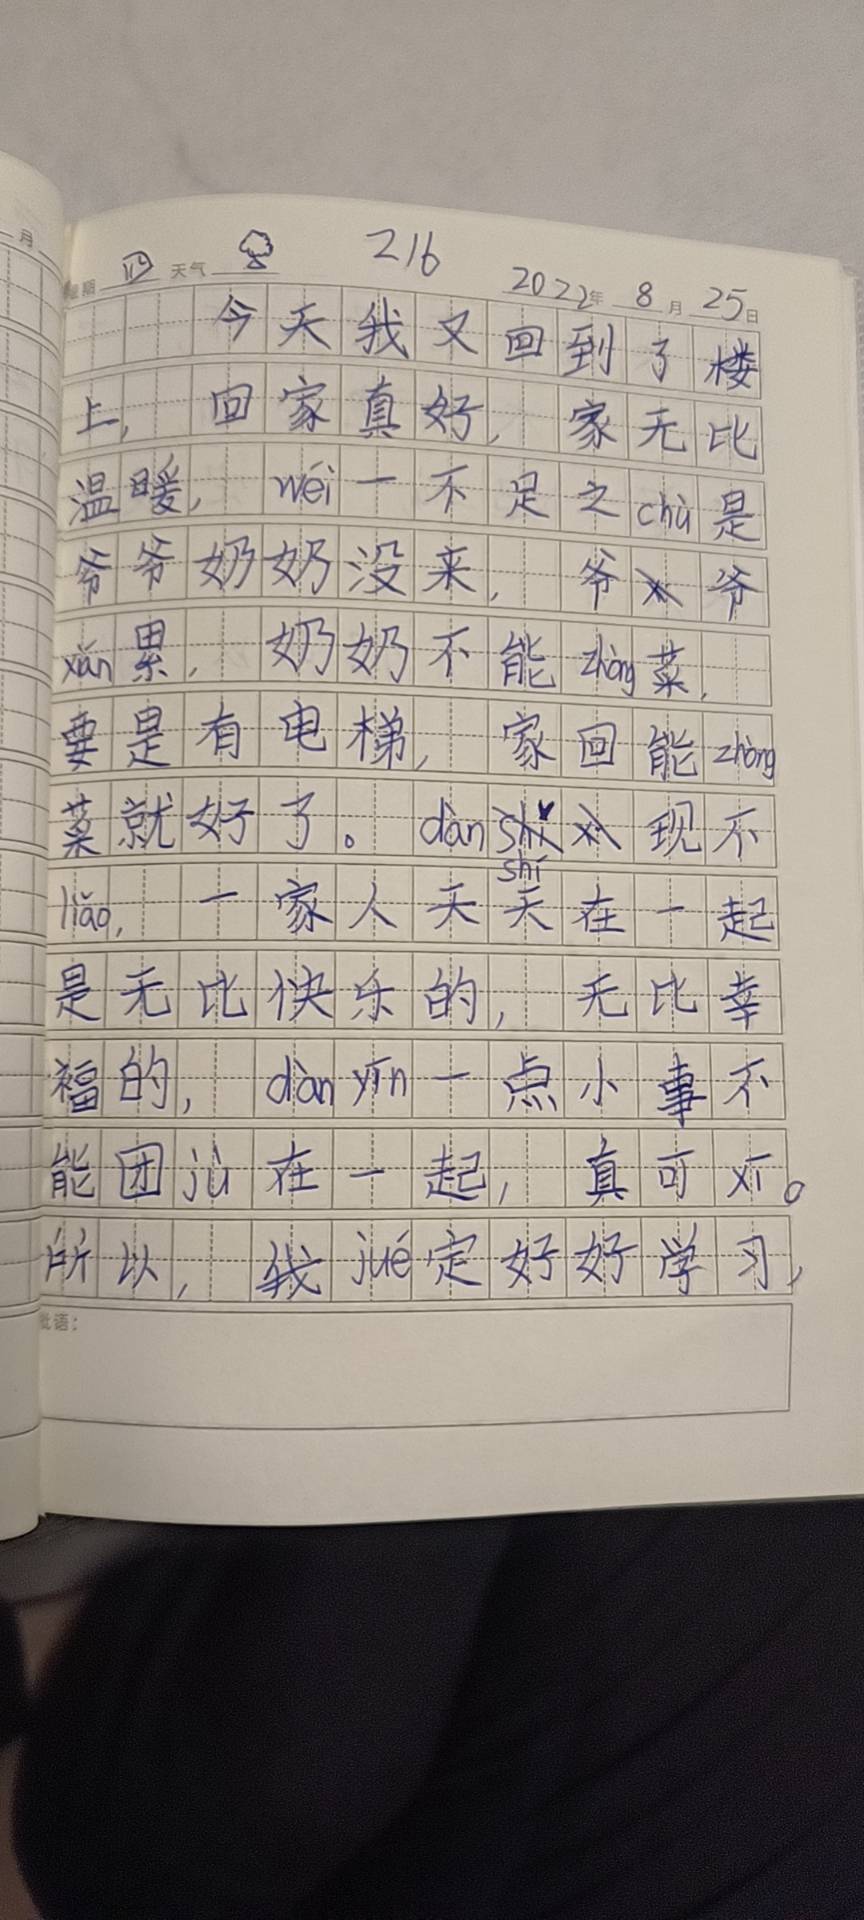 月
星期 四 天气
216
2022年 8月 25日
今天我又回到了楼
上，回家真好，家无比
温暖，wéi一不足之chù是
爷爷奶奶没来，爷爷
xián累，奶奶不能zhòng菜，
要是有电梯，家回能zhòng
菜就好了。dàn shí现不
liǎo，一家人天天在一起
是无比快乐的，无比幸
福的，dàn yīn一点小事不
能团jù在一起，真可xī。
所以，我jué定好好学习，
批语：